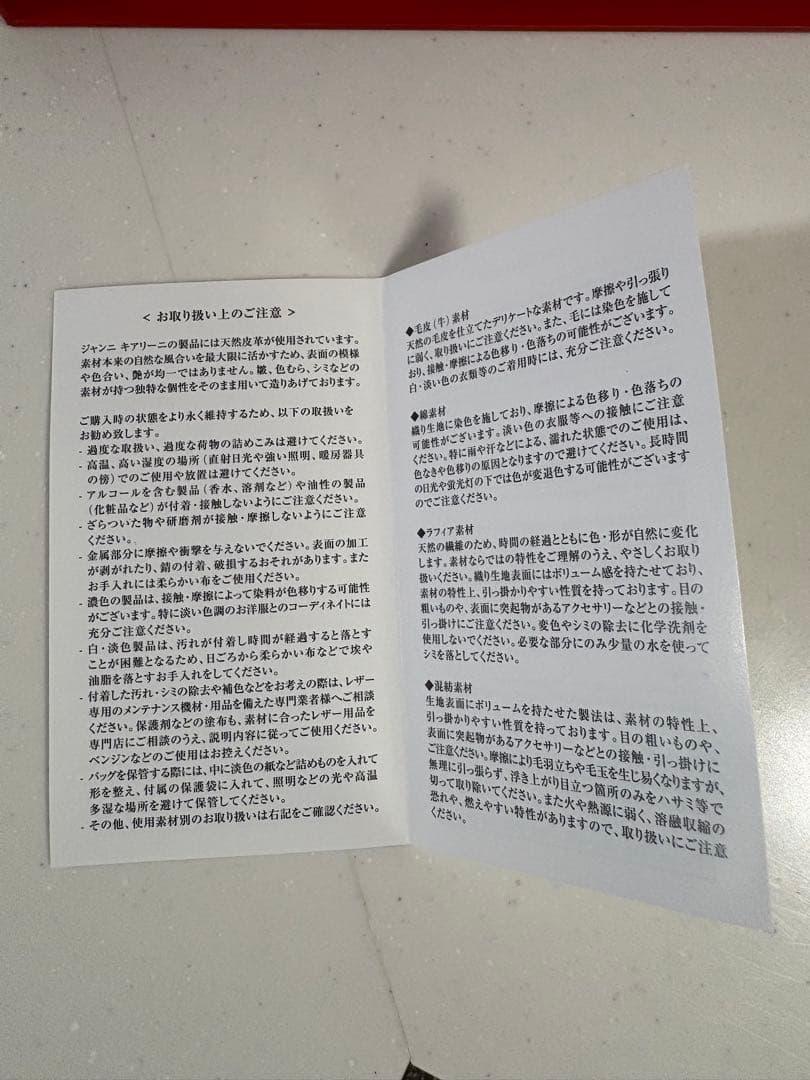 < お取り扱い上のご注意 >
ジャンニ キアリーニの製品には天然皮革が使用されています。
素材本来の自然な風合いを最大限に活かすため、表面の模様
や色合い、艶が均一ではありません。皺、色むら、シミなどの
素材が持つ独特な個性をそのまま用いて造りあげております。
ご購入時の状態をより永く維持するため、以下の取扱いを
お勧め致します。
- 過度な取扱い、過度な荷物の詰めこみは避けてください。
- 高温、高い湿度の場所（直射日光や強い照明、暖房器具
の傍）でのご使用や放置は避けてください。
- アルコールを含む製品（香水、溶剤など）や油性の製品
（化粧品など）が付着・接触しないようにご注意ください。
- ざらついた物や研磨剤が接触・摩擦しないようにご注意
ください。
- 金属部分に摩擦や衝撃を与えないでください。表面の加工
が剥がれたり、錆の付着、破損するおそれがあります。また
お手入れには柔らかい布をご使用ください。
- 濃色の製品は、接触・摩擦によって染料が色移りする可能性
がございます。特に淡い色調のお洋服とのコーディネイトには
充分ご注意ください。
- 白・淡色製品は、汚れが付着し時間が経過すると落とす
ことが困難となるため、日ごろから柔らかい布などで埃や
油脂を落とすお手入れをしてください。
- 付着した汚れ・シミの除去や補色などをお考えの際は、レザー
専用のメンテナンス機材・用品を備えた専門業者様へご相談
ください。保護剤などの塗布も、素材に合ったレザー用品を
専門店にご相談のうえ、説明内容に従ってご使用ください。
ベンジンなどのご使用はお控えください。
- バッグを保管する際には、中に淡色の紙など詰めものを入れて
形を整え、付属の保護袋に入れて、照明などの光や高温
多湿な場所を避けて保管してください。
- その他、使用素材別のお取り扱いは右記をご確認ください。
◆毛皮（牛）素材
天然の毛皮を仕立てたデリケートな素材です。摩擦や引っ張り
に弱く、取り扱いにご注意ください。また、毛には染色を施して
おり、接触・摩擦による色移り・色落ちの可能性がございます。
白・淡い色の衣類等のご着用時には、充分ご注意ください。
◆綿素材
織り生地に染色を施しており、摩擦による色移り・色落ちの
可能性がございます。淡い色の衣服等への接触にご注意
ください。特に雨や汗などによる、濡れた状態でのご使用は、
色なきや色移りの原因となりますので避けてください。長時間
の日光や蛍光灯の下では色が変退色する可能性がございます
のでご注意ください。
◆ラフィア素材
天然の繊維のため、時間の経過とともに色・形が自然に変化
します。素材ならではの特性をご理解のうえ、やさしくお取り
扱いください。織り生地表面にはボリューム感を持たせており、
素材の特性上、引っ掛かりやすい性質を持っております。目の
粗いものや、表面に突起物があるアクセサリーなどとの接触・
引っ掛けにご注意ください。変色やシミの除去に化学洗剤を
使用しないでください。必要な部分にのみ少量の水を使って
シミを落としてください。
◆混紡素材
生地表面にボリュームを持たせた製法は、素材の特性上、
引っ掛かりやすい性質を持っております。目の粗いものや、
表面に突起物があるアクセサリーなどとの接触・引っ掛けに
ご注意ください。摩擦により毛羽立ちや毛玉を生じ易くなりますが、
無理に引っ張らず、浮き上がり目立つ箇所のみをハサミ等で
切って取り除いてください。また火や熱源に弱く、溶融収縮の
恐れや、燃えやすい特性がありますので、取り扱いにご注意
ください。